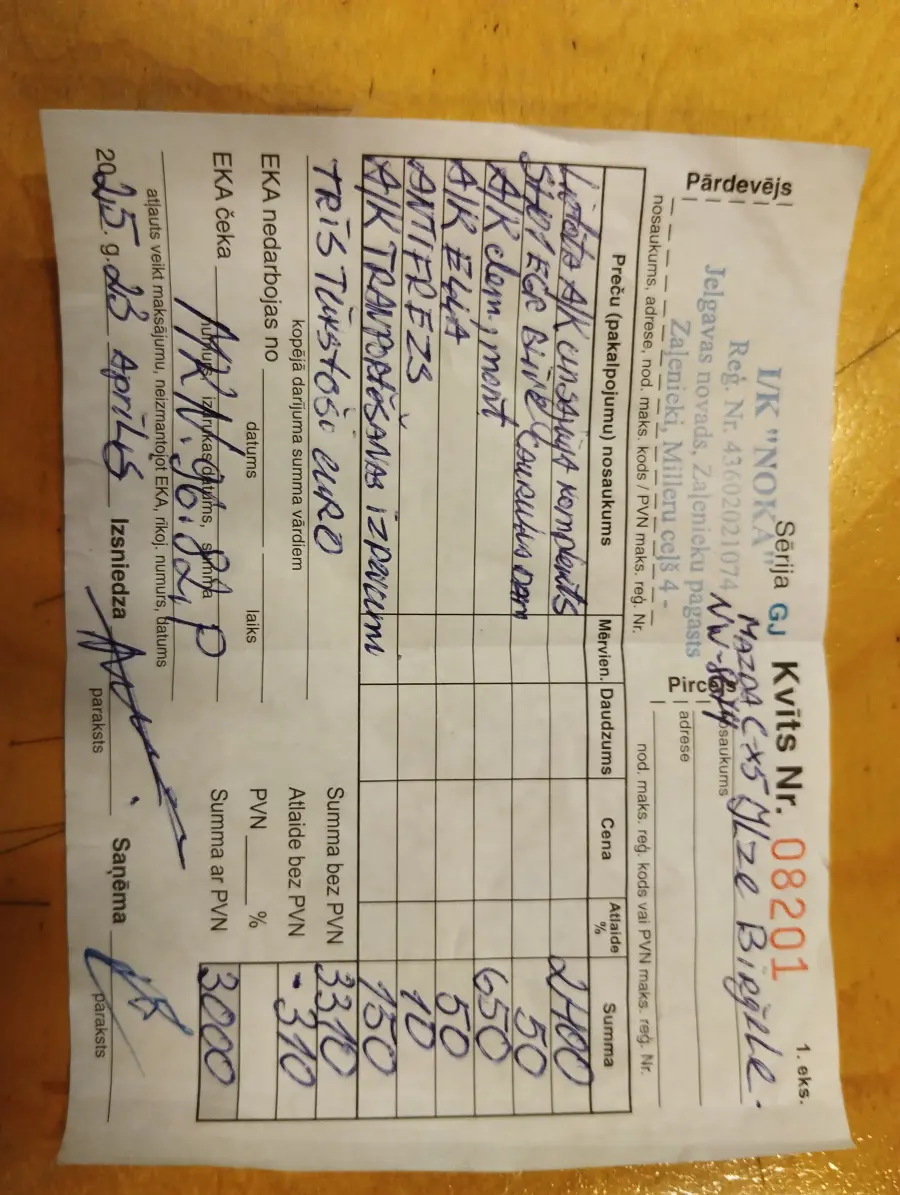 Sērija GJ Kvīts Nr. 08201
1. eks.
I/K "NOKA"
Reģ. Nr. 43602021074
Jelgavas novads, Zaļenieku pagasts
Zaļenieki, Milleru ceļš 4 -
MAZDA C-X5 Ilze Birģele.
Pārdevējs
Pircējs
nosaukums
adrese
nosaukums, adrese, nod. maks. kods / PVN maks. reģ. Nr.
nod. maks. reģ. kods vai PVN maks. reģ. Nr.
Preču (pakalpojumu) nosaukums Mērvien. Daudzums Cena Atlaide % Summa
Lietots A/K komplekts 2400
EGR 50
A/K dem, mont 650
A/K EĻĻA 50
ANTIFRĪZS 10
A/K 150
TRĪS TŪKSTOŠI EURO
kopējā darījuma summa vārdiem
Summa bez PVN 3310
EKA nedarbojas no
datums laiks
Atlaide bez PVN -310
PVN %
EKA čeka
numurs, izdrukas datums, summa
Summa ar PVN 3000
atļauts veikt maksājumu, neizmantojot EKA, rīkoj. numurs, datums
2025. g. 23 Aprīlis Izsniedza Saņēma
paraksts paraksts